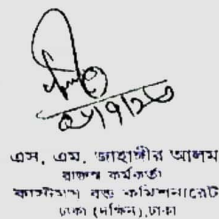 এস, এম, জাহাঙ্গীর আলম
রাজস্ব কর্মকর্তা
কাস্টমস বন্ড কমিশনারেট
ঢাকা (দক্ষিন), ঢাকা